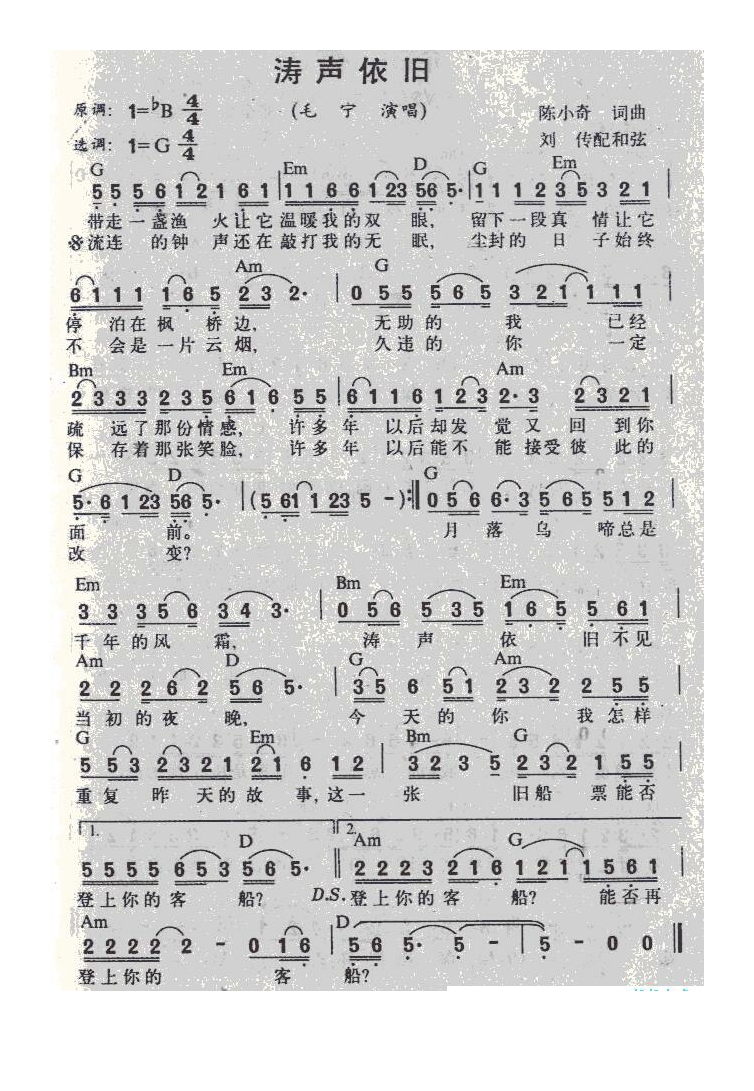 涛声依旧
原调: 1=♭B 4/4 (毛 宁 演唱) 陈小奇 词曲
选调: 1=G 4/4 刘 传配和弦
G Em D G Em
5 5 5 6 1 2 1 6 1 | 1 1 6 6 1 23 56 5· | 1 1 1 2 3 5 3 2 1 |
带走一盏渔 火让它温暖我的双 眼, 留下一段真 情让它
流连 的钟 声还在敲打我的无 眠, 尘封的 日 子始终
Am G
6 1 1 1 1 6 5 2 3 2· | 0 5 5 5 6 5 3 2 1 1 1 1 |
停 泊在枫 桥边, 无助的 我 已经
不 会是一片云烟, 久违的 你 一定
Bm Em Am
2 3 3 3 2 3 5 6 1 6 5 5 | 6 1 1 6 1 2 3 2· 3 2 3 2 1 |
疏 远了那份情感, 许多年 以后却发 觉又 回 到你
保 存着那张笑脸, 许多年 以后能不 能接受彼 此的
G D G
5· 6 1 23 56 5· | (5 61 1 23 5 -) :|| 0 5 6 6· 3 5 6 5 5 1 2 |
面 前。 月 落 乌 啼总是
改 变?
Em Bm Em
3 3 3 5 6 3 4 3· | 0 5 6 5 3 5 1 6 5 5 6 1 |
千年的风 霜, 涛 声 依 旧不见
Am D G Am
2 2 2 6 2 5 6 5· | 3 5 6 5 1 2 3 2 2 5 5 |
当初的夜 晚, 今 天的 你 我怎样
G Em Bm G
5 5 3 2 3 2 1 2 1 6 1 2 | 3 2 3 5 2 3 2 1 5 5 |
重复 昨 天的故 事,这一 张 旧船 票能否
1. D 2. Am G
5 5 5 5 6 5 3 5 6 5· || 2 2 2 3 2 1 6 1 2 1 1 5 6 1 |
登上你的客 船? D.S. 登上你的客 船? 能否再
Am D
2 2 2 2 2 - 0 1 6 | 5 6 5· 5 - | 5 - 0 0 ||
登上你的 客 船?